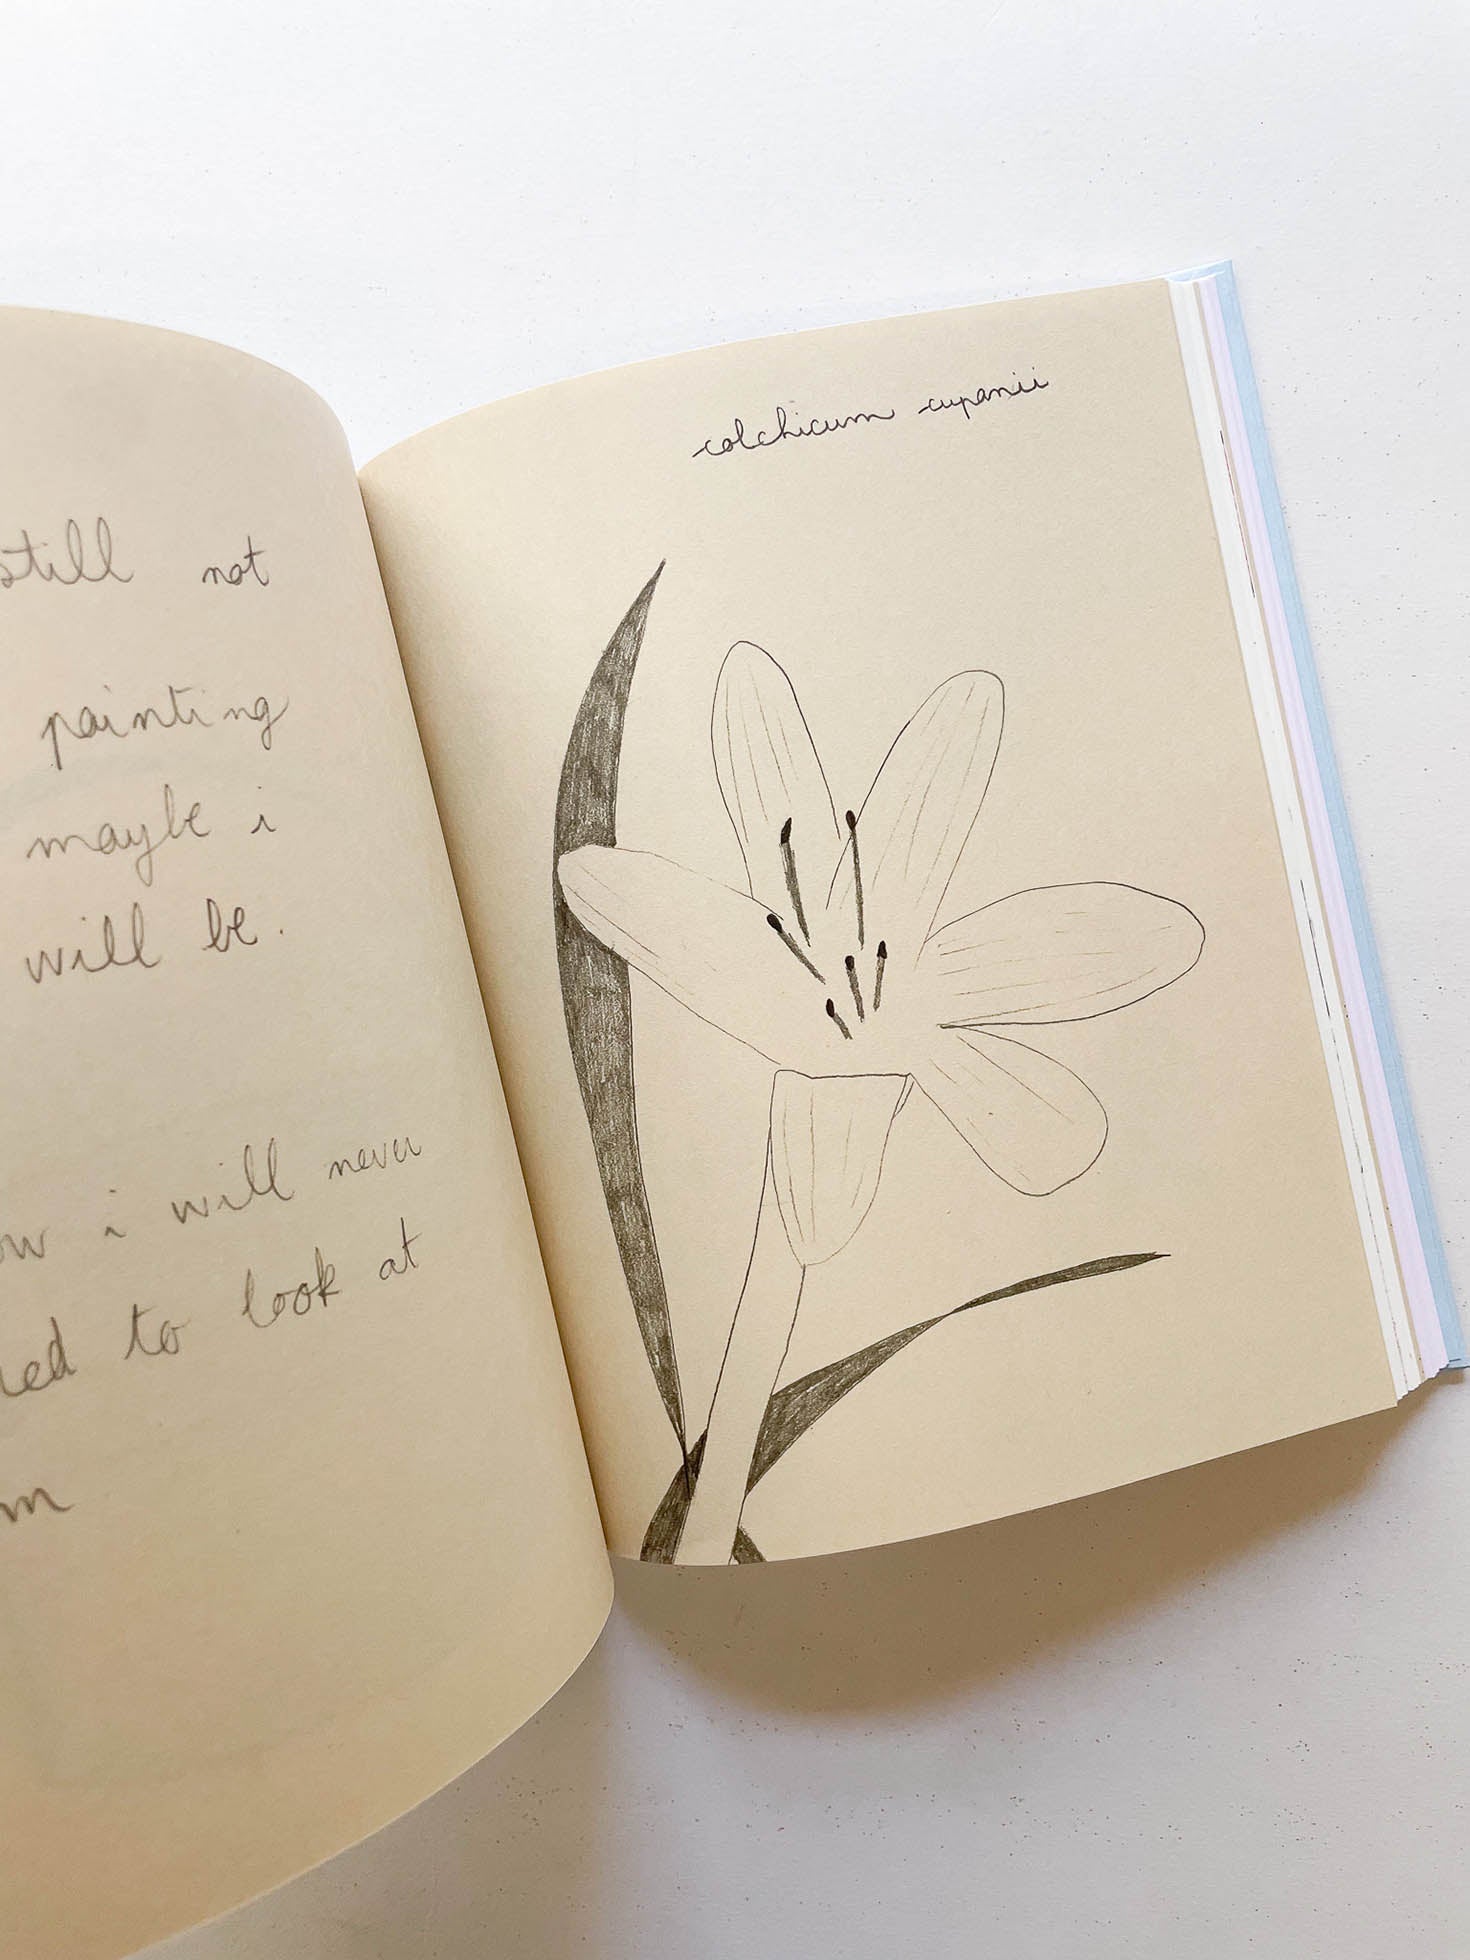 still not
painting
maybe i
will be.
i will never
to look at
colchicum cupanii